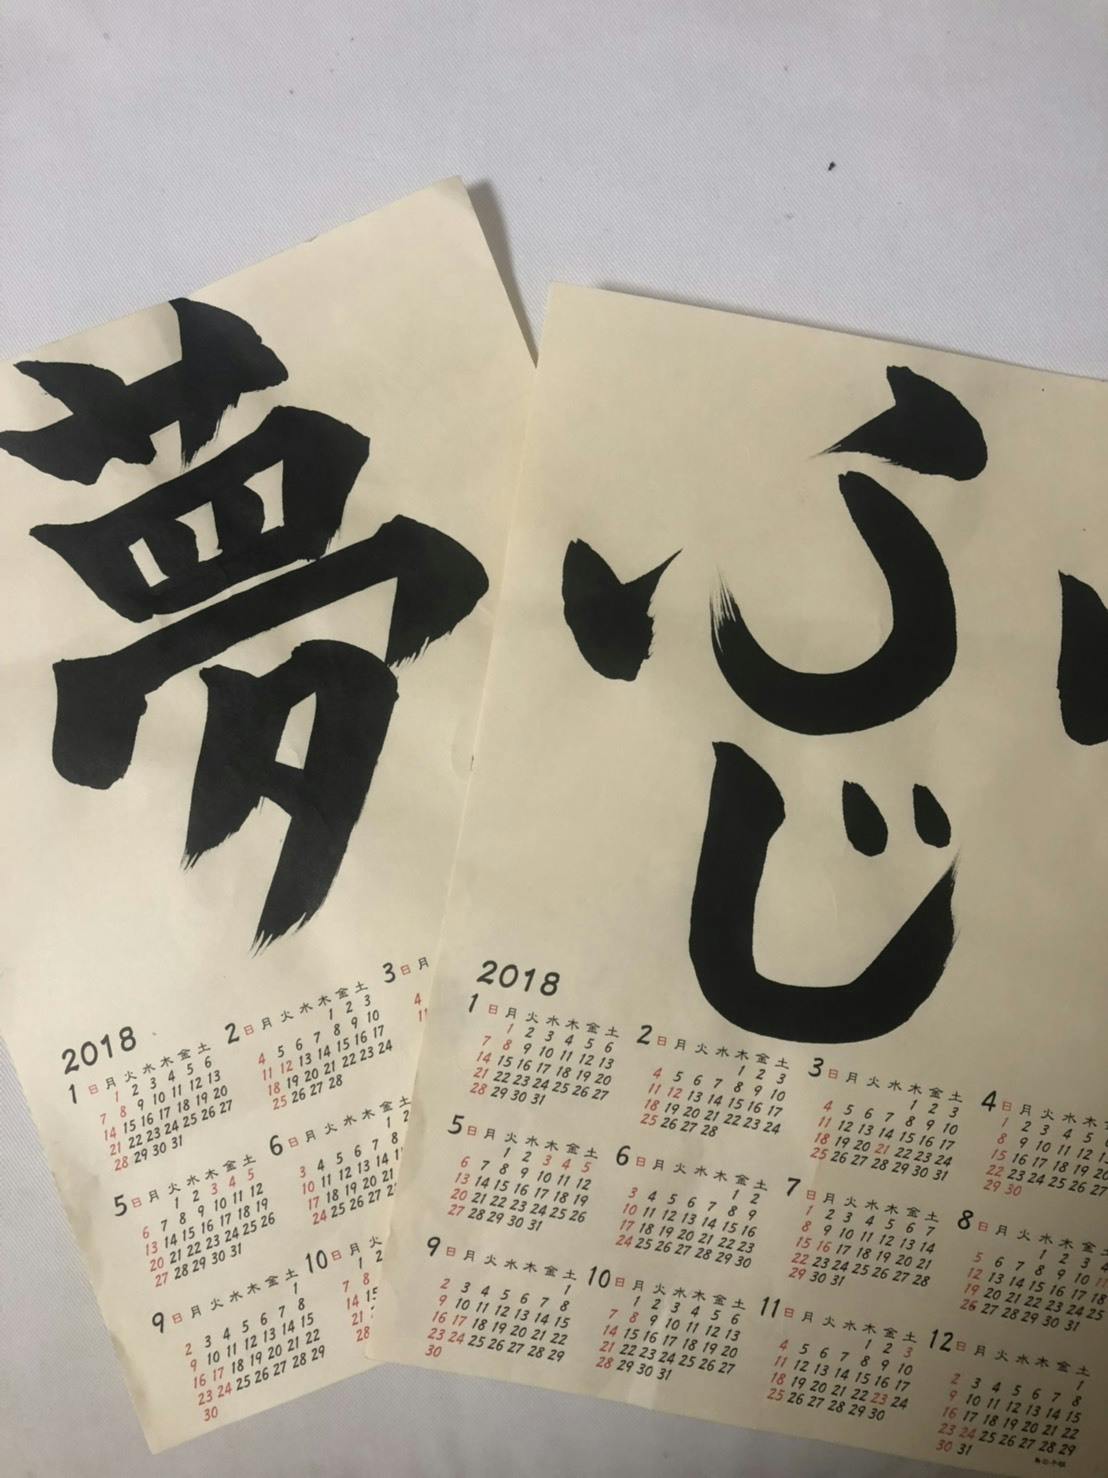 夢
2018
1 日 月 火 水 木 金 土
1 2 3 4 5 6
7 8 9 10 11 12 13
14 15 16 17 18 19 20
21 22 23 24 25 26 27
28 29 30 31
2 日 月 火 水 木 金 土
1 2 3
4 5 6 7 8 9 10
11 12 13 14 15 16 17
18 19 20 21 22 23 24
25 26 27 28
3 日 月
4
11
5 日 月 火 水 木 金 土
1 2 3 4 5
6 7 8 9 10 11 12
13 14 15 16 17 18 19
20 21 22 23 24 25 26
27 28 29 30 31
6 日 月 火 水 木 金
1 2
3 4 5 6 7 8
10 11 12 13 14 1
17 18 19 20 21
24 25 26 27 2
9 日 月 火 水 木 金 土
1
2 3 4 5 6 7 8
9 10 11 12 13 14 15
16 17 18 19 20 21 22
23 24 25 26 27 28 29
30
10 日 月 火
1 2
7 8
14 15
21
28
ふじ
2018
1 日 月 火 水 木 金 土
1 2 3 4 5 6
7 8 9 10 11 12 13
14 15 16 17 18 19 20
21 22 23 24 25 26 27
28 29 30 31
2 日 月 火 水 木 金 土
1 2 3
4 5 6 7 8 9 10
11 12 13 14 15 16 17
18 19 20 21 22 23 24
25 26 27 28
3 日 月 火 水 木 金 土
1 2 3
4 5 6 7 8 9 10
11 12 13 14 15 16 17
18 19 20 21 22 23 24
25 26 27 28 29 30 31
4 日 月 火 水 木
1 2 3 4 5 6
8 9 10 11 12 13
15 16 17 18 19 20
22 23 24 25 26 27
29 30
5 日 月 火 水 木 金 土
1 2 3 4 5
6 7 8 9 10 11 12
13 14 15 16 17 18 19
20 21 22 23 24 25 26
27 28 29 30 31
6 日 月 火 水 木 金 土
1 2
3 4 5 6 7 8 9
10 11 12 13 14 15 16
17 18 19 20 21 22 23
24 25 26 27 28 29 30
7 日 月 火 水 木 金 土
1 2 3 4 5 6 7
8 9 10 11 12 13 14
15 16 17 18 19 20 21
22 23 24 25 26 27 28
29 30 31
8 日 月 火 水 木 金
1 2 3 4
5 6 7 8 9 10 11
12 13 14 15 16 17 18
19 20 21 22 23 24 25
26 27 28 29 30 31
9 日 月 火 水 木 金 土
1
2 3 4 5 6 7 8
9 10 11 12 13 14 15
16 17 18 19 20 21 22
23 24 25 26 27 28 29
30
10 日 月 火 水 木 金 土
1 2 3 4 5 6
7 8 9 10 11 12 13
14 15 16 17 18 19 20
21 22 23 24 25 26 27
28 29 30 31
11 日 月 火 水 木 金 土
1 2 3
4 5 6 7 8 9 10
11 12 13 14 15 16 17
18 19 20 21 22 23 24
25 26 27 28 29 30
12 日 月 火 水 木 金 土
1
2 3 4 5 6 7 8
9 10 11 12 13 14 15
16 17 18 19 20 21 22
23 24 25 26 27 28 29
30 31